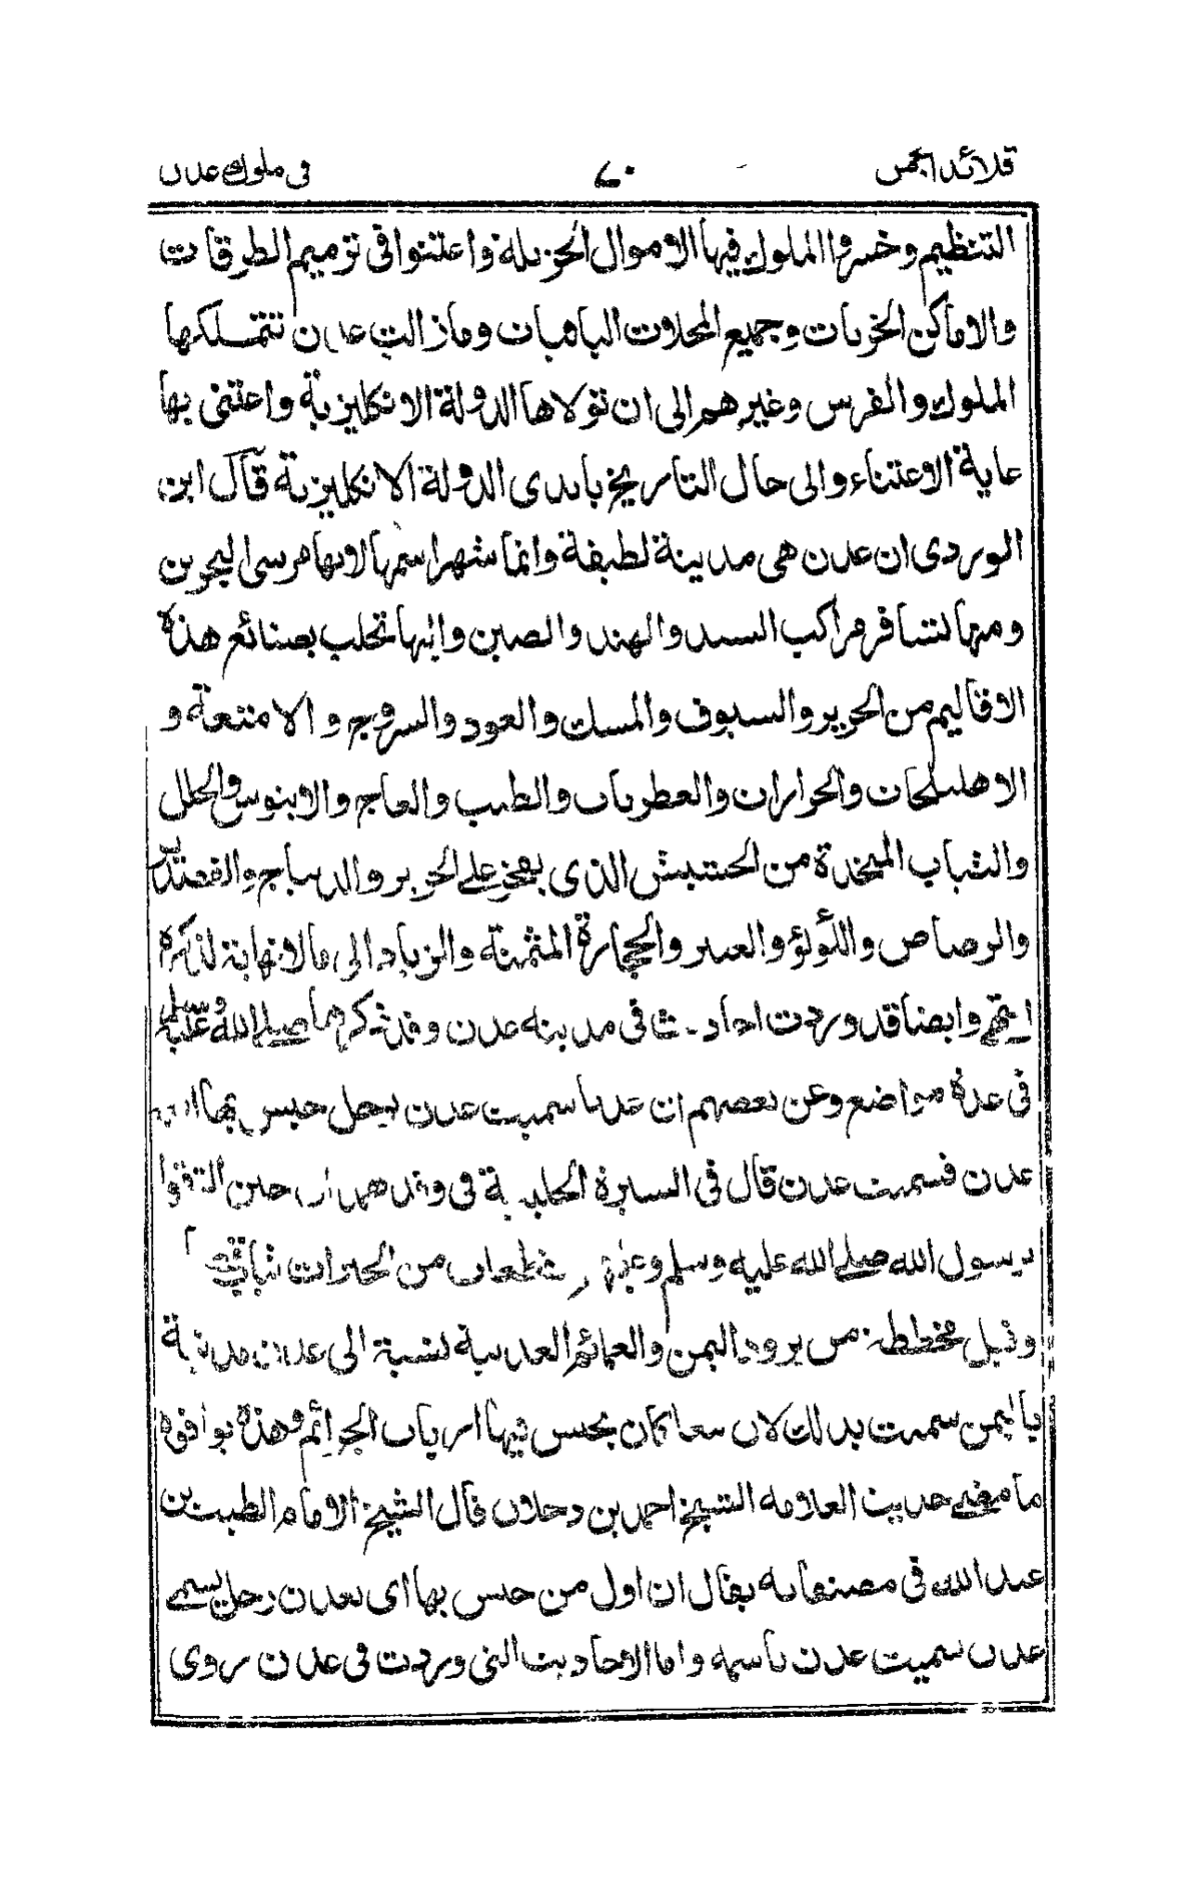 قلائد الجمن ٧٠ فى ملوك عدن
التنظيم وخسروا الملوك فيها الاموال الجزيلة واعتنوا فى ترميم الطرقات
والاماكن الخربات وجميع المحلات الباهيات ومازالت عدن تتملكها
الملوك والفرس وغيرهم الى ان تولاها الدولة الانكليزية واعتنى بها
غاية الاعتناء والى حال التاريخ بايدى الدولة الانكليزية قال ابن
الوردى ان عدن هى مدينة لطيفة وانما شهر اسمها لانها مرسى البحرين
ومنها تسافر مراكب السند والهند والصين واليها تجلب بصنائع هذه
الاقاليم من الحرير والسيوف والمسك والعود والسروج و الامتعة و
الاهليلجات والحرايران والعطريات والطيب والعاج والابنوس والحلل
والثياب المتخذة من الحشيش الذى يفخر على الحرير والديباج والقصدير
والرصاص واللؤلؤ والعنبر والحجارة المثمنة والزباد الى مالا نهاية لذكره
انتهى وايضا قد وردت احاديث فى مدينه عدن وقد ذكرها صلى الله عليه وسلم
فى عدة مواضع وعن بعضهم ان عدنا سميت عدن برجل حبس بها
عدن فسميت عدن قال فى السيرة الحلبية فى وفد همدان حين التقوا
برسول الله صلى الله عليه وسلم وعليهم مقطعات من الحبرات ثياب
وقيل مخططة من برود اليمن والعمائم العدنية نسبة الى عدن مدينة
باليمن سميت بذلك لان تبعا كان يحبس فيها ارباب الجرائم وهذه يوافقه
ما مضى حديث العلامه الشيخ احمد بن دحلان قال الشيخ الامام الطيب بن
عبد الله فى مصنفاته يقال ان اول من حبس بها اى بعدن رجل يسمى
عدن سميت عدن باسمه واما الاحاديث التى وردت فى عدن روى